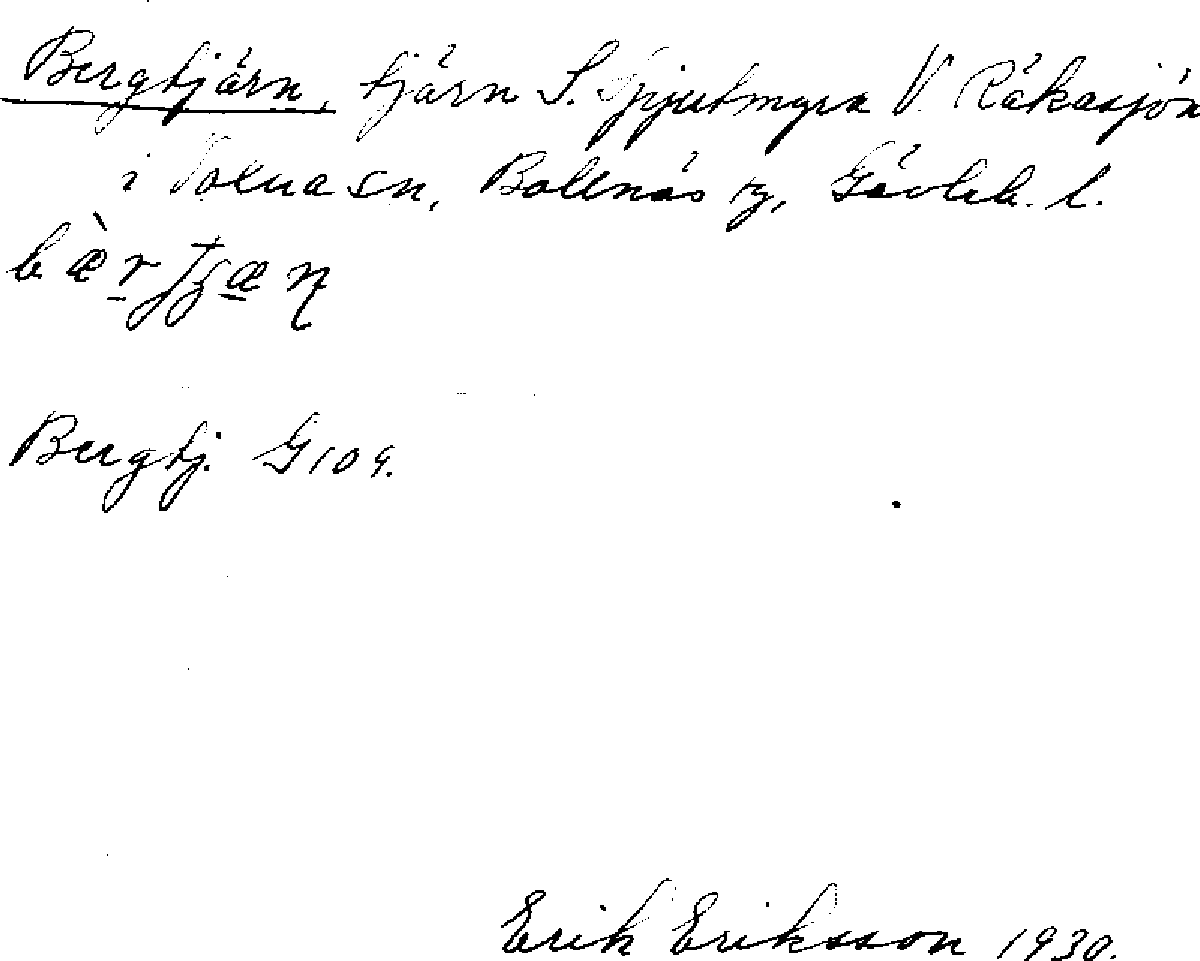 Bergtjärn, tjärn S. Spjutmyra V. Råkasjön
i Voxna sn, Bollnäs tg, Gävleb. l.
Bergtj. G109.
Erik Eriksson 1930.